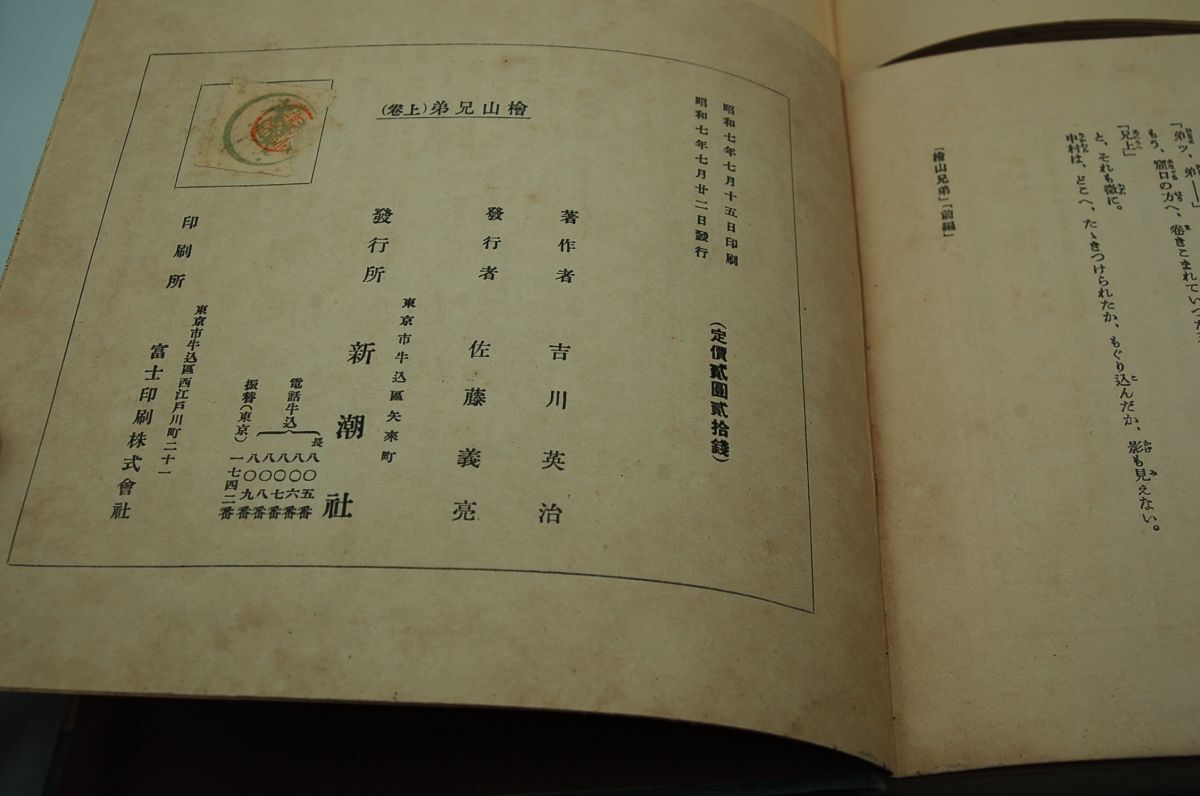 「弟ッ、弟――」
もう、窟口の方へ、卷きこまれていつた
「兄上」
と、それも微に。
中村は、どこへ、たゝきつけられたか、もぐり込んだか、影も見えない。
「檜山兄弟」「前編」
昭和七年七月十五日印刷
昭和七年七月廿二日發行
(定價貳圓貳拾錢)
檜山兄弟(上卷)
著作者 吉川英治
發行者 佐藤義亮
東京市牛込區矢來町
發行所 新潮社
電話牛込
長八〇五番
八〇六番
八〇七番
八〇八番
八〇九番
振替(東京)一七四二番
東京市牛込區西江戸川町二十一
印刷所 富士印刷株式會社